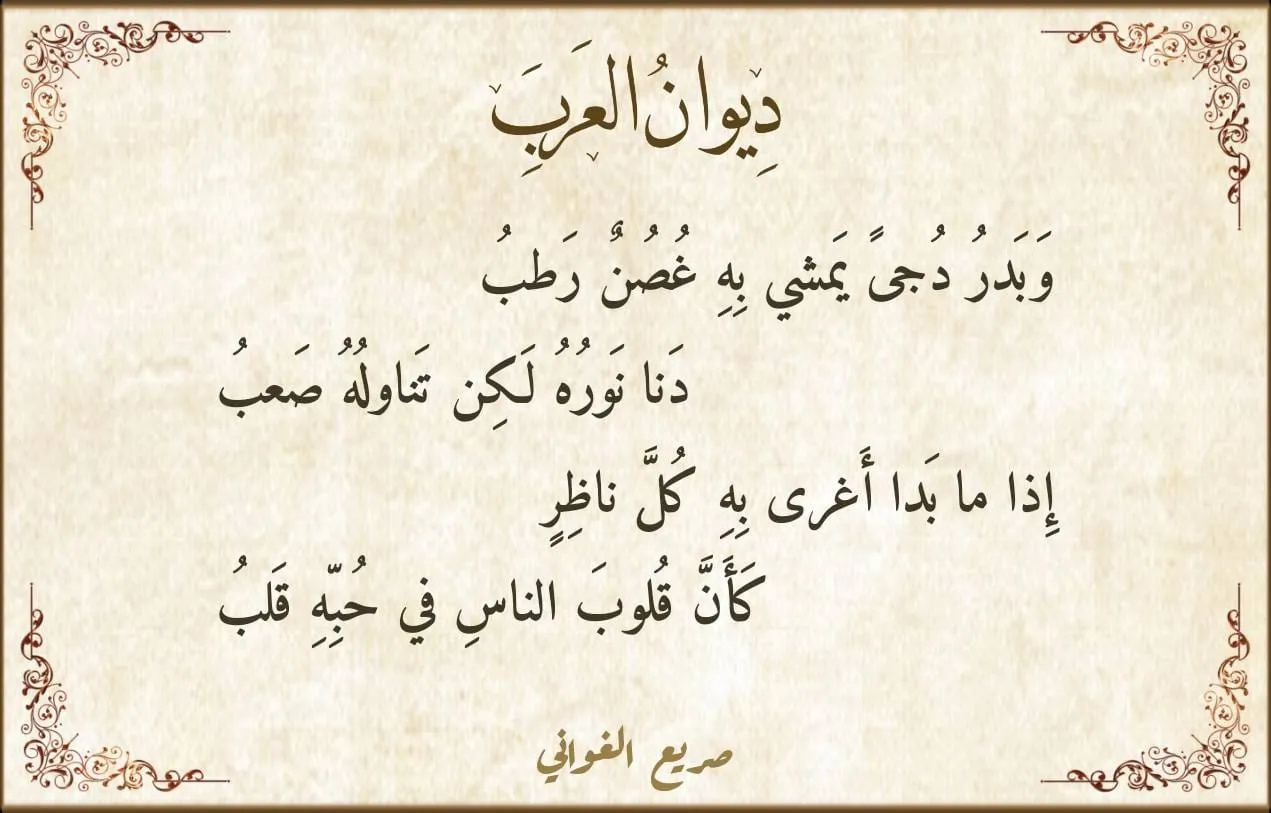 دِيوانُ العَرَبِ
وَبَدرُ دُجىً يَمشي بِهِ غُصُنٌ رَطبُ
دَنا نَورُهُ لَكِن تَناولُهُ صَعبُ
إِذا ما بَدا أَغرى بِهِ كُلَّ ناظِرٍ
كَأَنَّ قُلوبَ الناسِ في حُبِّهِ قَلبُ
صريع الغواني